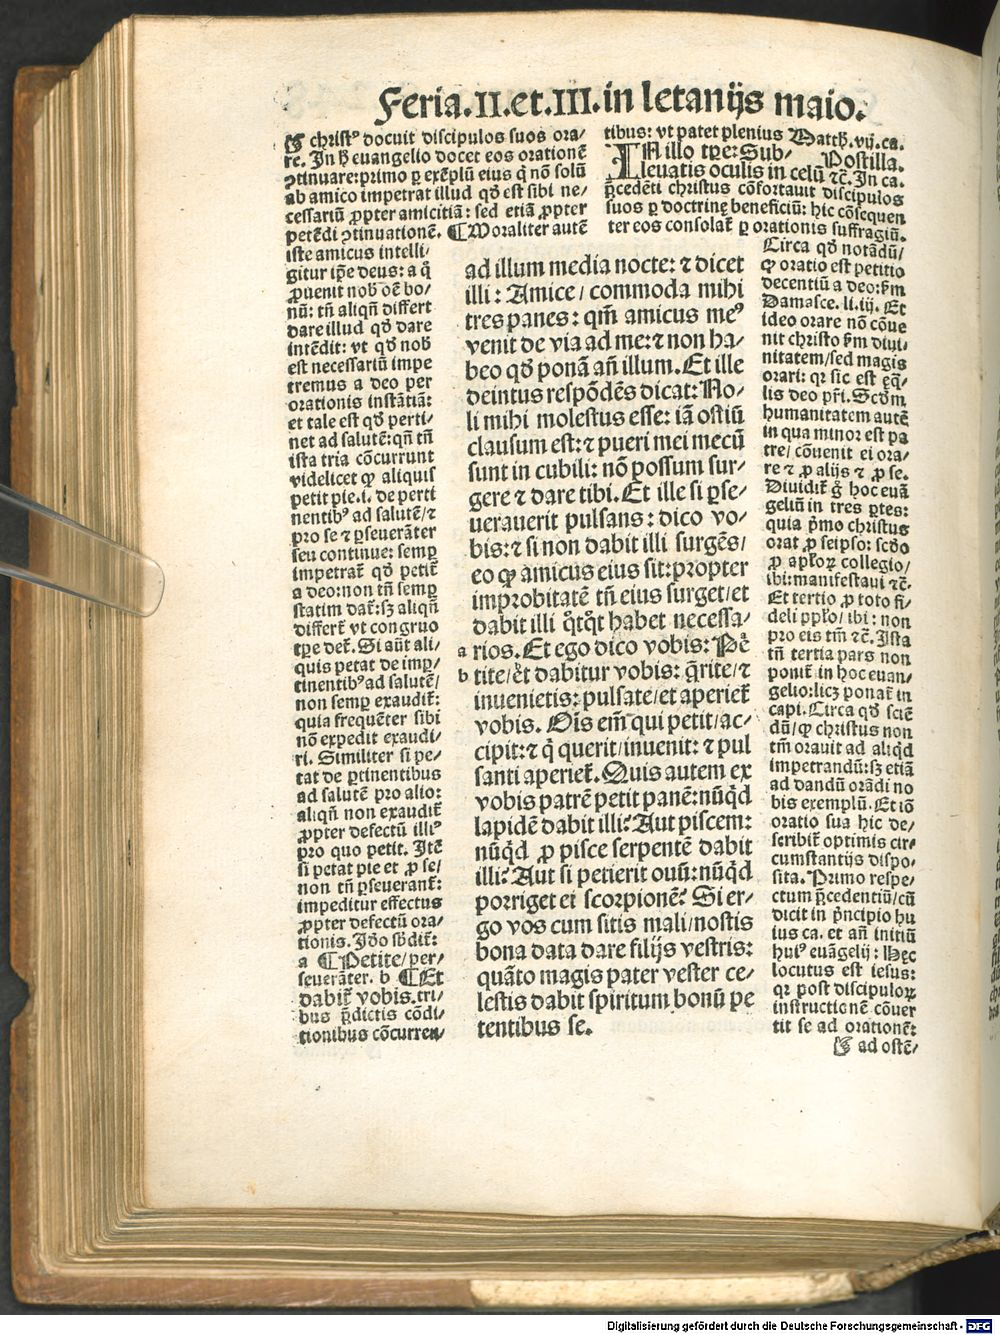 Feria.II.et.III.in letanijs maio.
☞ christꝰ docuit discipulos suos ora/
re. In hͦ euangelio docet eos orationē
ↄtinuare: primo ꝑ exēplū eius q̇ nō solū
ab amico impetrat illud qd̄ est sibi ne/
cessariū ꝓpter amicitiā: sed etiā ꝓpter
petēdi ↄtinuationē. ¶ Moraliter autē
iste amicus intelli/
gitur ip̄e deus: a q̇
ꝓuenit nob̄ oē bo/
nū: tn̄ aliqn̄ differt
dare illud qd̄ dare
intēdit: vt qd̄ nob̄
est necessariū impe
tremus a deo per
orationis instātiā:
et tale est qd̄ perti/
net ad salutē: qn̄ tn̄
ista tria cōcurrunt
videlicet ꝙ aliquis
petit pie.i. de perti
nentibꝰ ad salutē/⁊
pro se ⁊ ꝑseuerāter
seu continue: semꝑ
impetrat̄ qd̄ petit̄
a deo: non tn̄ semꝑ
statim dat̄: sꝫ aliqn̄
differt̄ vt congruo
tp̄e det̄. Si aūt ali/
quis petat de imꝑ/
tinentibꝰ ad salutē/
non semꝑ exaudit̄:
quia frequēter sibi
nō expedit exaudi/
ri. Similiter si pe/
tat de ꝑtinentibus
ad salutē pro alio:
aliqn̄ non exaudit̄
ꝓpter defectū illiꝰ
pro quo petit. Itē
si petat pie et ꝓ se/
non tn̄ ꝑseuerant̄:
impeditur effectus
ꝓpter defectū ora/
tionis. Iđo sb̄dit̄:
a ¶ Petite/per/
seuerāter. b ¶ Et
dabit̄ vobis. tri/
bus p̄dictis cōdi/
tionibus cōcurren/
ad illum media nocte: ⁊ dicet
illi: Amice/ commoda mihi
tres panes: qm̄ amicus meꝰ
venit de via ad me: ⁊ non ha/
beo qd̄ ponā an̄ illum. Et ille
deintus respōdēs dicat: No/
li mihi molestus esse: iā ostiū
clausum est: ⁊ pueri mei mecū
sunt in cubili: nō possum sur/
gere ⁊ dare tibi. Et ille si ꝑse/
uerauerit pulsans: dico vo/
bis: ⁊ si non dabit illi surgēs/
eo ꝙ amicus eius sit: propter
improbitatē tn̄ eius surget/et
dabit illi q̇tq̇t habet necessa/
a rios. Et ego dico vobis: Pe
b tite/et dabitur vobis: q̄rite/⁊
inuenietis: pulsate/et aperiet̄
vobis. Oīs em̄ qui petit/ac/
cipit: ⁊ q̇ querit/inuenit: ⁊ pul
santi aperiet̄. Quis autem ex
vobis patrē petit panē: nūq̇d
lapidē dabit illi? Aut piscem:
nūq̇d ꝓ pisce serpentē dabit
illi? Aut si petierit ouū: nūq̇d
porriget ei scorpionē? Si er/
go vos cum sitis mali/nostis
bona data dare filijs vestris:
quāto magis pater vester ce/
lestis dabit spiritum bonū pe
tentibus se.
tibus: vt patet plenius Matth. vij. ca.
IN illo tp̄e: Sub/ Postilla.
leuatis oculis in celū ⁊c̄. In ca.
p̄cedēti christus cōfortauit discipulos
suos ꝑ doctrine beneficiū: hic cōsequen
ter eos consolat̄ ꝑ orationis suffragiū.
Circa qd̄ notādū/
ꝙ oratio est petitio
decentiū a deo: ẜm
Damasce. li. iij. Et
ideo orare nō cōue
nit christo ẜm diui/
nitatem/sed magis
orari: qr sic est eq̄/
lis deo pr̄i. Scd̄m
humanitatem autē
in qua minor est pa
tre/ cōuenit ei ora/
re ⁊ ꝓ alijs ⁊ ꝓ se.
Diuidit̄ g̊ hoc euā
geliū in tres ꝑtes:
quia pͥmo christus
orat ꝓ seipso: scđo
ꝓ apl̄oꝝ collegio/
ibi: manifestaui ⁊c̄.
Et tertio ꝓ toto fi/
deli pplo/ ibi: non
pro eis tm̄ ⁊c̄. Ista
tn̄ tertia pars non
ponit̄ in hoc euan/
gelio: licꝫ ponat̄ in
capi. Circa qd̄ sciē
dū/ꝙ christus non
tm̄ orauit ad aliq̇d
impetrandū: sꝫ etiā
ad dandū orādi no
bis exemplū. Et iō
oratio sua hic de/
scribit̄ optimis cir/
cumstantijs dispo/
sita. Primo respe/
ctum p̄cedentiū/cū
dicit in pͥncipio hu
ius ca. et an̄ initiū
huiꝰ euāgelij: Hec
locutus est iesus:
qr post discipuloꝝ
instructionē cōuer
tit se ad orationē:
☞ ad ostē/
Digitalisierung gefördert durch die Deutsche Forschungsgemeinschaft - DFG